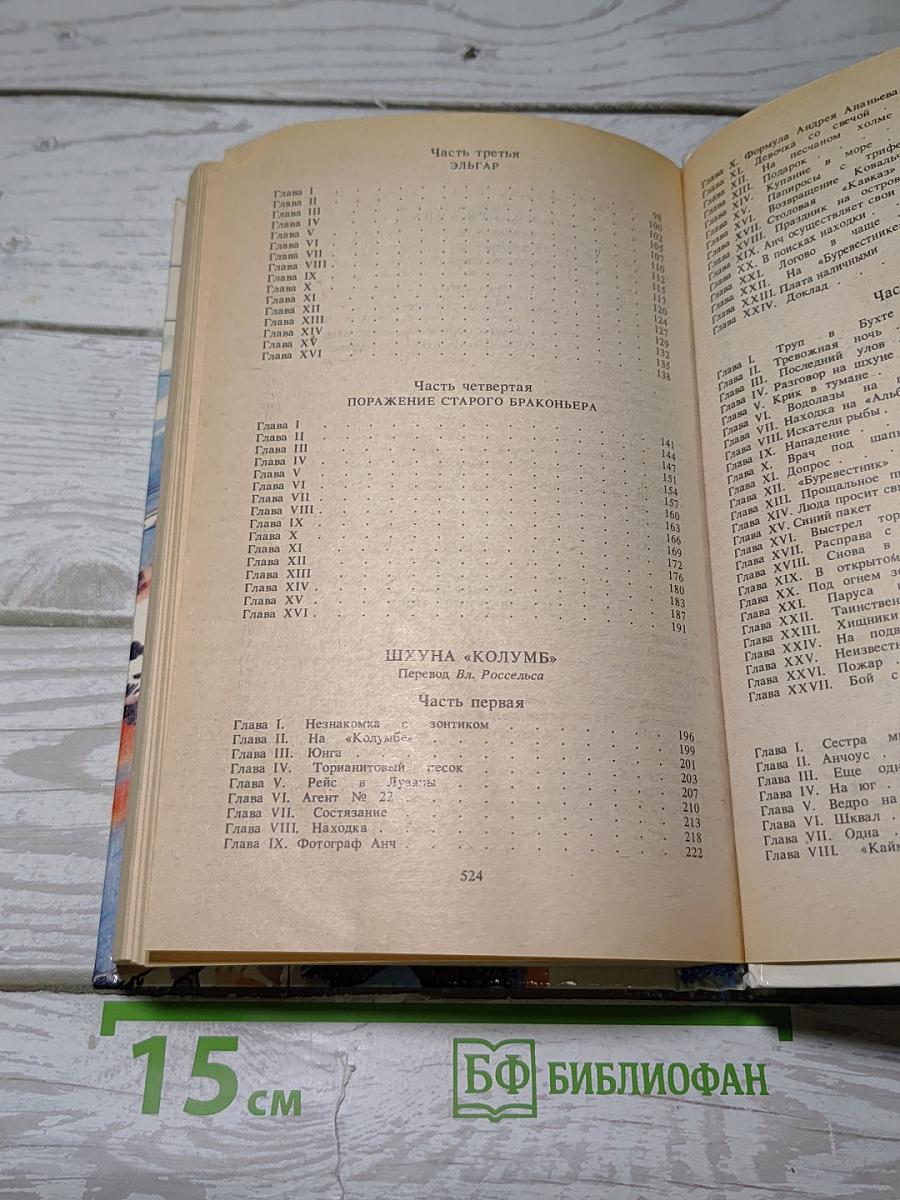 Часть третья
ЭЛЬГАР
Глава I . . . 98
Глава II . . . 100
Глава III . . . 102
Глава IV . . . 105
Глава V . . . 107
Глава VI . . . 110
Глава VII . . . 112
Глава VIII . . . 115
Глава IX . . . 117
Глава X . . . 120
Глава XI . . . 124
Глава XII . . . 127
Глава XIII . . . 129
Глава XIV . . . 132
Глава XV . . . 135
Глава XVI . . . 138
Часть четвертая
ПОРАЖЕНИЕ СТАРОГО БРАКОНЬЕРА
Глава I . . . 141
Глава II . . . 144
Глава III . . . 147
Глава IV . . . 151
Глава V . . . 154
Глава VI . . . 157
Глава VII . . . 160
Глава VIII . . . 163
Глава IX . . . 166
Глава X . . . 169
Глава XI . . . 172
Глава XII . . . 176
Глава XIII . . . 180
Глава XIV . . . 183
Глава XV . . . 187
Глава XVI . . . 191
ШХУНА «КОЛУМБ»
Перевод Вл. Россельса
Часть первая
Глава I. Незнакомка с зонтиком . . . 196
Глава II. На «Колумбе» . . . 199
Глава III. Юнга . . . 201
Глава IV. Торианитовый песок . . . 203
Глава V. Рейс в Лузаны . . . 207
Глава VI. Агент № 22 . . . 210
Глава VII. Состязание . . . 213
Глава VIII. Находка . . . 218
Глава IX. Фотограф Анч . . . 222
524
Глава X. Формула Андрея Ананьева
Глава XI. Девочка со свечой
Глава XII. На песчаном холме
Глава XIII. Подарок
Глава XIV. Купание в море
Глава XV. Папиросы с трифе
Глава XVI. Возвращение Ковальч
Глава XVII. Столовая «Кавказ»
Глава XVIII. Праздник на остров
Глава XIX. Анч осуществляет свои
Глава XX. В поисках находки
Глава XXI. Логово в чаще
Глава XXII. На «Буревестнике»
Глава XXIII. Плата наличными
Глава XXIV. Доклад
Час
Глава I. Труп в Бухте
Глава II. Тревожная ночь
Глава III. Последний улов
Глава IV. Разговор на шхуне
Глава V. Крик в тумане
Глава VI. Водолазы на
Глава VII. Находка на «Альб
Глава VIII. Искатели рыбы
Глава IX. Нападение
Глава X. Врач под шап
Глава XI. Допрос
Глава XII. «Буревестник»
Глава XIII. Прощальное
Глава XIV. Люда просит
Глава XV. Синий пакет
Глава XVI. Выстрел тор
Глава XVII. Расправа с
Глава XVIII. Снова в
Глава XIX. В открытом
Глава XX. Под огнем
Глава XXI. Паруса
Глава XXII. Таинствен
Глава XXIII. Хищники
Глава XXIV. На подв
Глава XXV. Неизвестн
Глава XXVI. Пожар
Глава XXVII. Бой с
Глава I. Сестра
Глава II. Анчоус
Глава III. Еще одн
Глава IV. На юг
Глава V. Ведро на
Глава VI. Шквал
Глава VII. Одна
Глава VIII. «Кайм
15 см
БФ БИБЛИОФАН